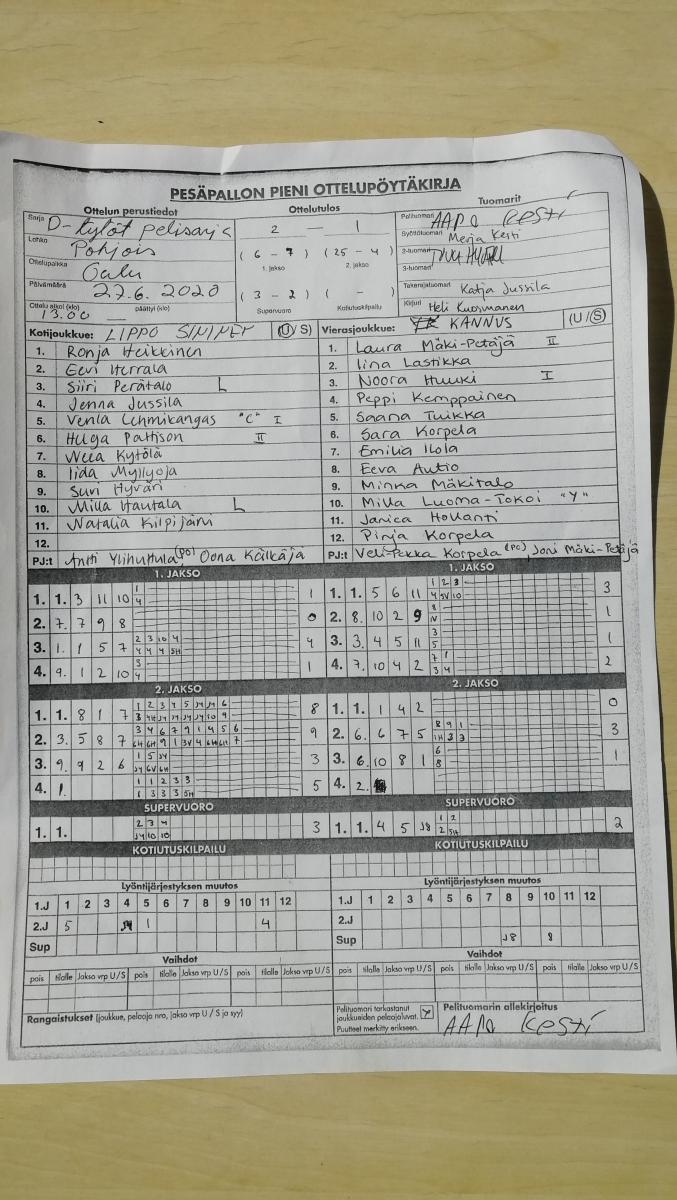 PESÄPALLON PIENI OTTELUPÖYTÄKIRJA
Ottelun perustiedot
Sarja D-tytöt pelisarja
Lohko Pohjois
Ottelupaikka Oulu
Päivämäärä 27.6. 2020
Ottelu alkoi (klo) 13.00 päättyi (klo)
Ottelutulos
2 — 1
( 6 - 7 ) ( 25 - 4 )
1. jakso 2. jakso
( 3 - 2 ) ( - )
Supervuoro Kotiutuskilpailu
Tuomarit
Pelituomari AAPO KESTI
Syöttötuomari Merja Kesti
2-tuomari
3-tuomari
Takarajatuomari Katja Jussila
Kirjuri Heli Kuosmanen
Kotijoukkue: LIPPO SINISET (U/S)
1. Ronja Heikkinen
2. Eevi Herrala
3. Siiri Perätalo L
4. Jenna Jussila
5. Venla Lehmikangas "C" I
6. Helga Pattison II
7. Neea Kytölä
8. Iida Myllyoja
9. Suvi Hyväri
10. Milla Hautala L
11. Natalia Kilpijärvi
12.
PJ:t Antti Ylihuttula (PO) Oona Källkäjä
Vierasjoukkue: KANNUS (U/S)
1. Laura Mäki-Petäjä II
2. Iina Lastikka
3. Noora Huuki I
4. Peppi Kemppainen
5. Saana Tuikka
6. Sara Korpela
7. Emilia Ilola
8. Eeva Autio
9. Minka Mäkitalo
10. Milla Luoma-Tokoi "Y"
11. Janica Hollanti
12. Pinja Korpela
PJ:t Veli-Pekka Korpela (PC) Joni Mäki-Petäjä
1. JAKSO
1. 1. 3 11 10 1
4 1
2. 7. 7 9 8 0
3. 1. 1 5 7 2 3 10 4
4 4 4 5H 4
4. 9. 1 2 10 3
4 1
1. JAKSO
1. 1. 5 6 11 1 2 3
4 5V 10 3
2. 8. 10 2 9 8
N 1
3. 3. 4 5 11 3
5 1
4. 7. 10 4 2 7 1
3 4 2
2. JAKSO
1. 1. 8 1 7 1 2 3 4 5 J4 J4 6
3 4H J4 J4 J4 J4 10 9 8
2. 3. 5 8 7 3 4 6 7 9 1 4 5 6
6H 6H 9 1 3V 4 6H 6H 7 9
3. 9. 9 2 6 1 5 J4
J4 6V 6H 3
4. 1. 1 1 2 3 3
1 3 3 3 5H 5
2. JAKSO
1. 1. 1 4 2 0
2. 6. 6 7 5 8 9 1
1H 3 3 3
3. 6. 10 8 1 6
8 1
4. 2.
SUPERVUORO
1. 1. 2 3 4
J4 10 10 3
SUPERVUORO
1. 1. 4 5 J8 1 2
2 5H 2
KOTIUTUSKILPAILU
KOTIUTUSKILPAILU
Lyöntijärjestyksen muutos
1.J 1 2 3 4 5 6 7 8 9 10 11 12
2.J 5 J4 1 4
Sup
Lyöntijärjestyksen muutos
1.J 1 2 3 4 5 6 7 8 9 10 11 12
2.J
Sup J8 8
Vaihdot
pois tilalle Jakso vrp U/S pois tilalle Jakso vrp U/S pois tilalle Jakso vrp U/S
Vaihdot
pois tilalle Jakso vrp U/S pois tilalle Jakso vrp U/S pois tilalle Jakso vrp U/S
Rangaistukset (joukkue, pelaaja nro, jakso vrp U / S ja syy)
Pelituomari tarkastanut
joukkueiden pelaajaluvat.
Puutteet merkitty erikseen.
Pelituomarin allekirjoitus
AAPO KESTI